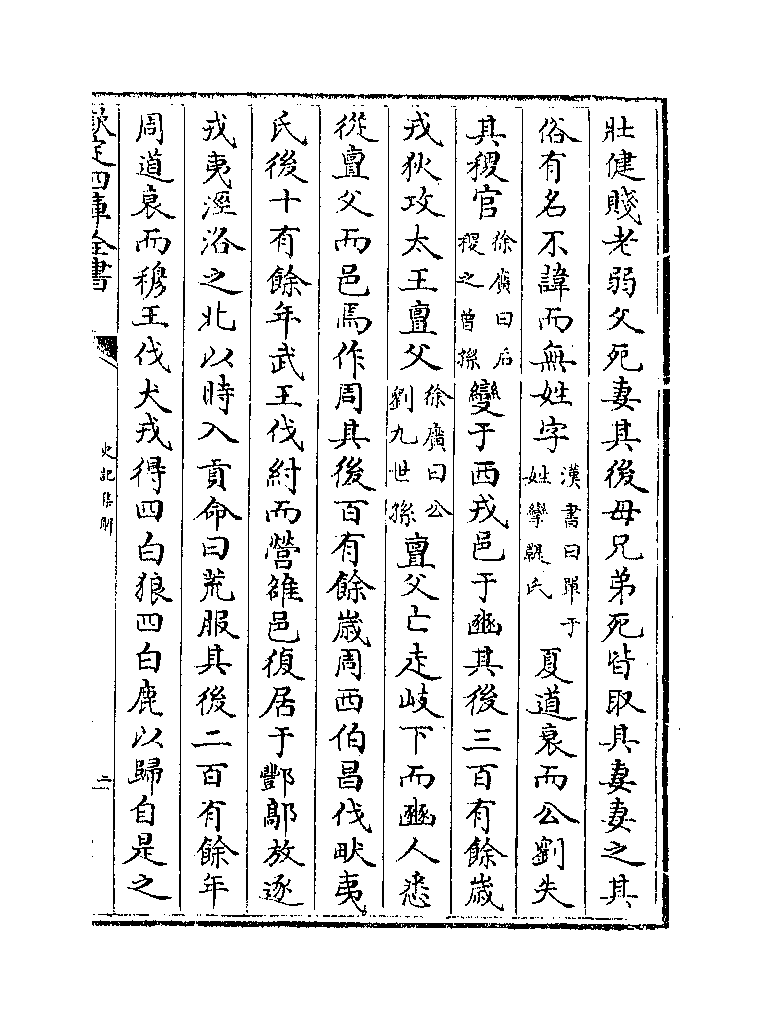 壯健賤老弱父死妻其後母兄弟死皆取其妻妻之其
俗有名不諱而無姓字漢書曰單于姓攣鞮氏夏道衰而公劉失
其稷官徐廣曰后稷之曾孫變于西戎邑于豳其後三百有餘歲
戎狄攻太王亶父徐廣曰公劉九世孫亶父亡走岐下而豳人悉
從亶父而邑焉作周其後百有餘歲周西伯昌伐畎夷
氏後十有餘年武王伐紂而營雒邑復居于酆鄗放逐
戎夷涇洛之北以時入貢命曰荒服其後二百有餘年
周道衰而穆王伐犬戎得四白狼四白鹿以歸自是之
欽定四庫全書
史記集解
二